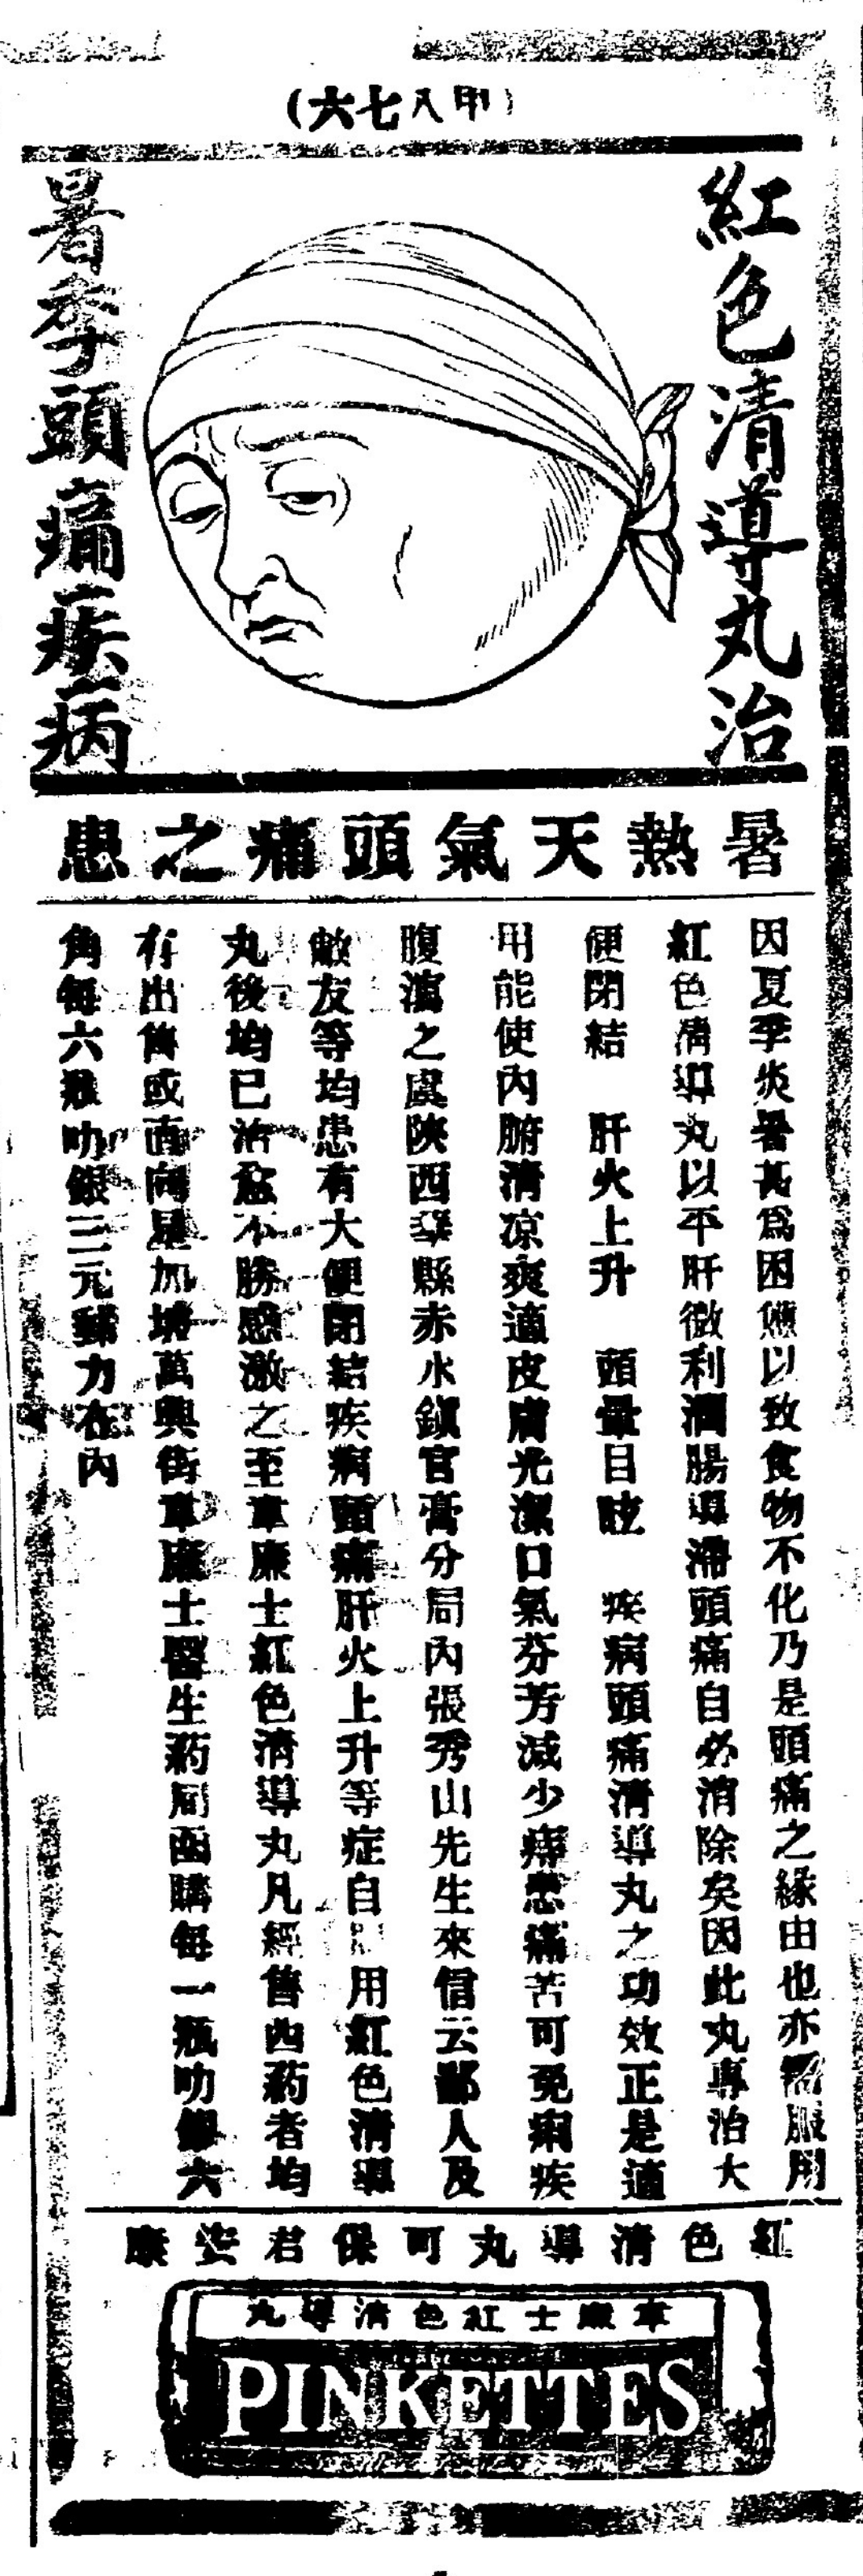 (甲八七六)
紅色清導丸治
暑季頭痛疾病
暑熱天氣頭痛之患
因夏季炎暑甚為困憊以致食物不化乃是頭痛之緣由也亦需服用
紅色清導丸以平肝微利潤腸導滯頭痛自必消除矣因此丸專治大
便閉結 肝火上升 頭暈目眩 疾病頭痛清導丸之功效正是適
用能使內腑清凉爽適皮膚光潔口氣芬芳減少痔患痛苦可免痢疾
腹瀉之虞陝西華縣赤水鎮官膏分局內張秀山先生來信云鄙人及
敝友等均患有大便閉結疾病頭痛肝火上升等症自用紅色清導
丸後均已治愈不勝感激之至韋廉士紅色清導丸凡經售西葯者均
有出售或直向星加坡萬興街韋廉士醫生葯局函購每一瓶叻銀六
角每六瓶叻銀三元郵力在內
紅色清導丸可保君安康
韋廉士紅色清導丸
PINKETTES